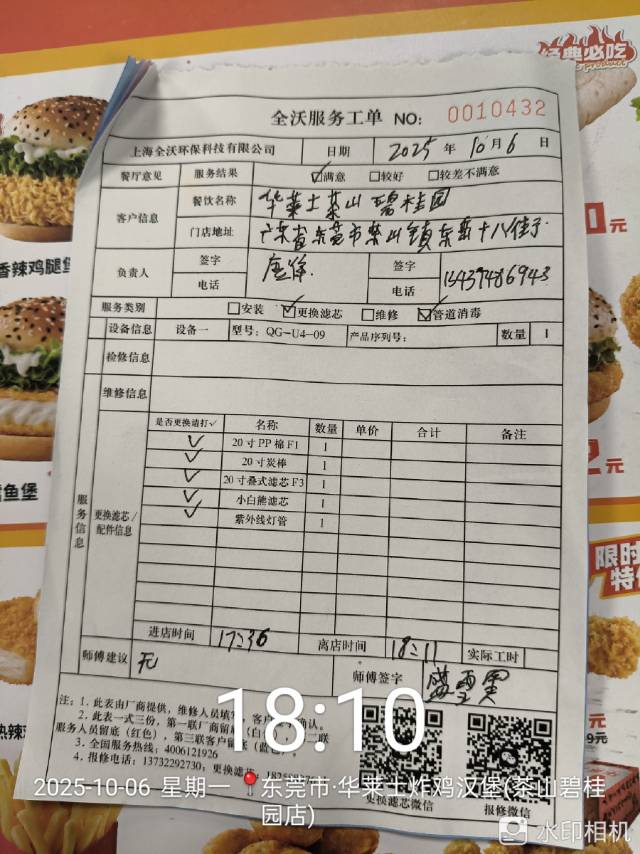 经典必吃
全沃服务工单 NO: 0010432
上海全沃环保科技有限公司 日期 2025 年 10 月 6 日
餐厅意见 服务结果 ☑满意 □较好 □较差不满意
客户信息 餐饮名称 华莱士茶山碧桂园
门店地址 广东省东莞市茶山镇东岳十八街
负责人 签字 签字
电话 电话
服务类别 □安装 ☑更换滤芯 □维修 ☑管道消毒
设备信息 设备一 型号: QG-U4-09 产品序列号: 数量 1
检修信息
维修信息
服务信息
更换滤芯/配件信息
是否更换请打✓ 名称 数量 单价 合计 备注
✓ 20寸PP棉F1 1
✓ 20寸炭棒 1
✓ 20寸叠式滤芯F3 1
✓ 小白熊滤芯 1
✓ 紫外线灯管 1
进店时间 17:36 离店时间 18:11 实际工时
师傅建议 无 师傅签字
注: 1. 此表由厂商提供, 维修人员填写, 客户 确认。
2. 此表一式三份, 第一联厂商留 (白 二联
服务人员留底(红色), 第三联客户 (蓝
3. 全国服务热线: 4006121926
4. 报修电话: 13732292730; 更换滤
更换滤芯微信 报修微信
18:10
2025-10-06 星期一 东莞市·华莱士炸鸡汉堡(茶山碧桂
园店)
水印相机
香辣鸡腿堡
鱼堡
热辣
元
元
限时
特
元